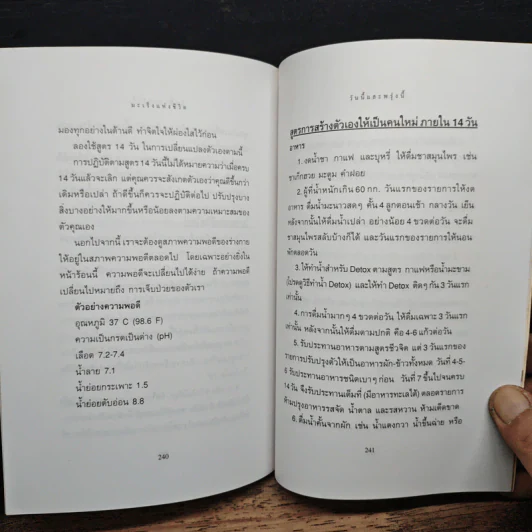 มะเร็งแห่งชีวิต
มองทุกอย่างในด้านดี ทำจิตใจให้ผ่องใสไว้ก่อน
ลองใช้สูตร 14 วัน ในการเปลี่ยนแปลงตัวเองตามนี้
การปฏิบัติตามสูตร 14 วันนี้ไม่ได้หมายความว่าเมื่อครบ
14 วันแล้วจะเลิก แต่คุณควรจะสังเกตตัวเองว่าคุณดีขึ้นกว่า
เดิมหรือเปล่า ถ้าดีขึ้นก็ควรจะปฏิบัติต่อไป ปรับปรุงบาง
สิ่งบางอย่างให้มากขึ้นหรือน้อยลงตามความเหมาะสมของ
ตัวคุณเอง
นอกไปจากนี้ เราจะต้องดูสภาพความพอดีของร่างกาย
ให้อยู่ในสภาพความพอดีตลอดไป โดยเฉพาะอย่างยิ่งใน
หน้าร้อนนี้ ความพอดีจะเปลี่ยนไปได้ง่าย ถ้าความพอดี
เปลี่ยนไปหมายถึง การเจ็บป่วยของตัวเรา
ตัวอย่างความพอดี
อุณหภูมิ 37 C (98.6 F)
ความเป็นกรดเป็นด่าง (pH)
เลือด 7.2-7.4
น้ำลาย 7.1
น้ำย่อยกระเพาะ 1.5
น้ำย่อยตับอ่อน 8.8
240
วันนี้และพรุ่งนี้
สูตรการสร้างตัวเองให้เป็นคนใหม่ ภายใน 14 วัน
อาหาร
1. งดน้ำชา กาแฟ และบุหรี่ ให้ดื่มชาสมุนไพร เช่น
ชาเก็กฮวย มะตูม คำฝอย
2. ผู้ที่น้ำหนักเกิน 60 กก. วันแรกของรายการให้งด
อาหาร ดื่มน้ำมะนาวสดๆ คั้น 4 ลูกตอนเช้า กลางวัน เย็น
หลังจากนั้นให้ดื่มน้ำเปล่า อย่างน้อย 4 ขวดต่อวัน จะดื่ม
ชาสมุนไพรสลับบ้างก็ได้ และวันแรกของรายการให้นอน
พักตลอดวัน
3.ให้ทำน้ำสำหรับ Detox ตามสูตร กาแฟหรือน้ำมะขาม
(โปรดดูวิธีทำน้ำ Detox) และให้ทำ Detox ติดๆ กัน 3 วันแรก
เท่านั้น
4. การดื่มน้ำมากๆ 4 ขวดต่อวัน ให้ดื่มเฉพาะ 3 วันแรก
เท่านั้น หลังจากนั้นให้ดื่มตามปกติ คือ 4-6 แก้วต่อวัน
5. รับประทานอาหารตามสูตรชีวจิต แต่ 3 วันแรกของ
รายการปรับปรุงตัวให้เป็นอาหารผัก-ข้าวทั้งหมด วันที่ 4-5-
6 รับประทานอาหารชนิดเบาๆ ก่อน วันที่ 7 ขึ้นไปจนครบ
14 วัน จึงรับประทานเต็มที่ (มีอาหารทะเลได้) ตลอดรายการ
ห้ามปรุงอาหารรสจัด น้ำตาล และรสหวาน ห้ามเด็ดขาด
6. ดื่มน้ำคั้นจากผัก เช่น น้ำแตงกวา น้ำขึ้นฉ่าย หรือ
241